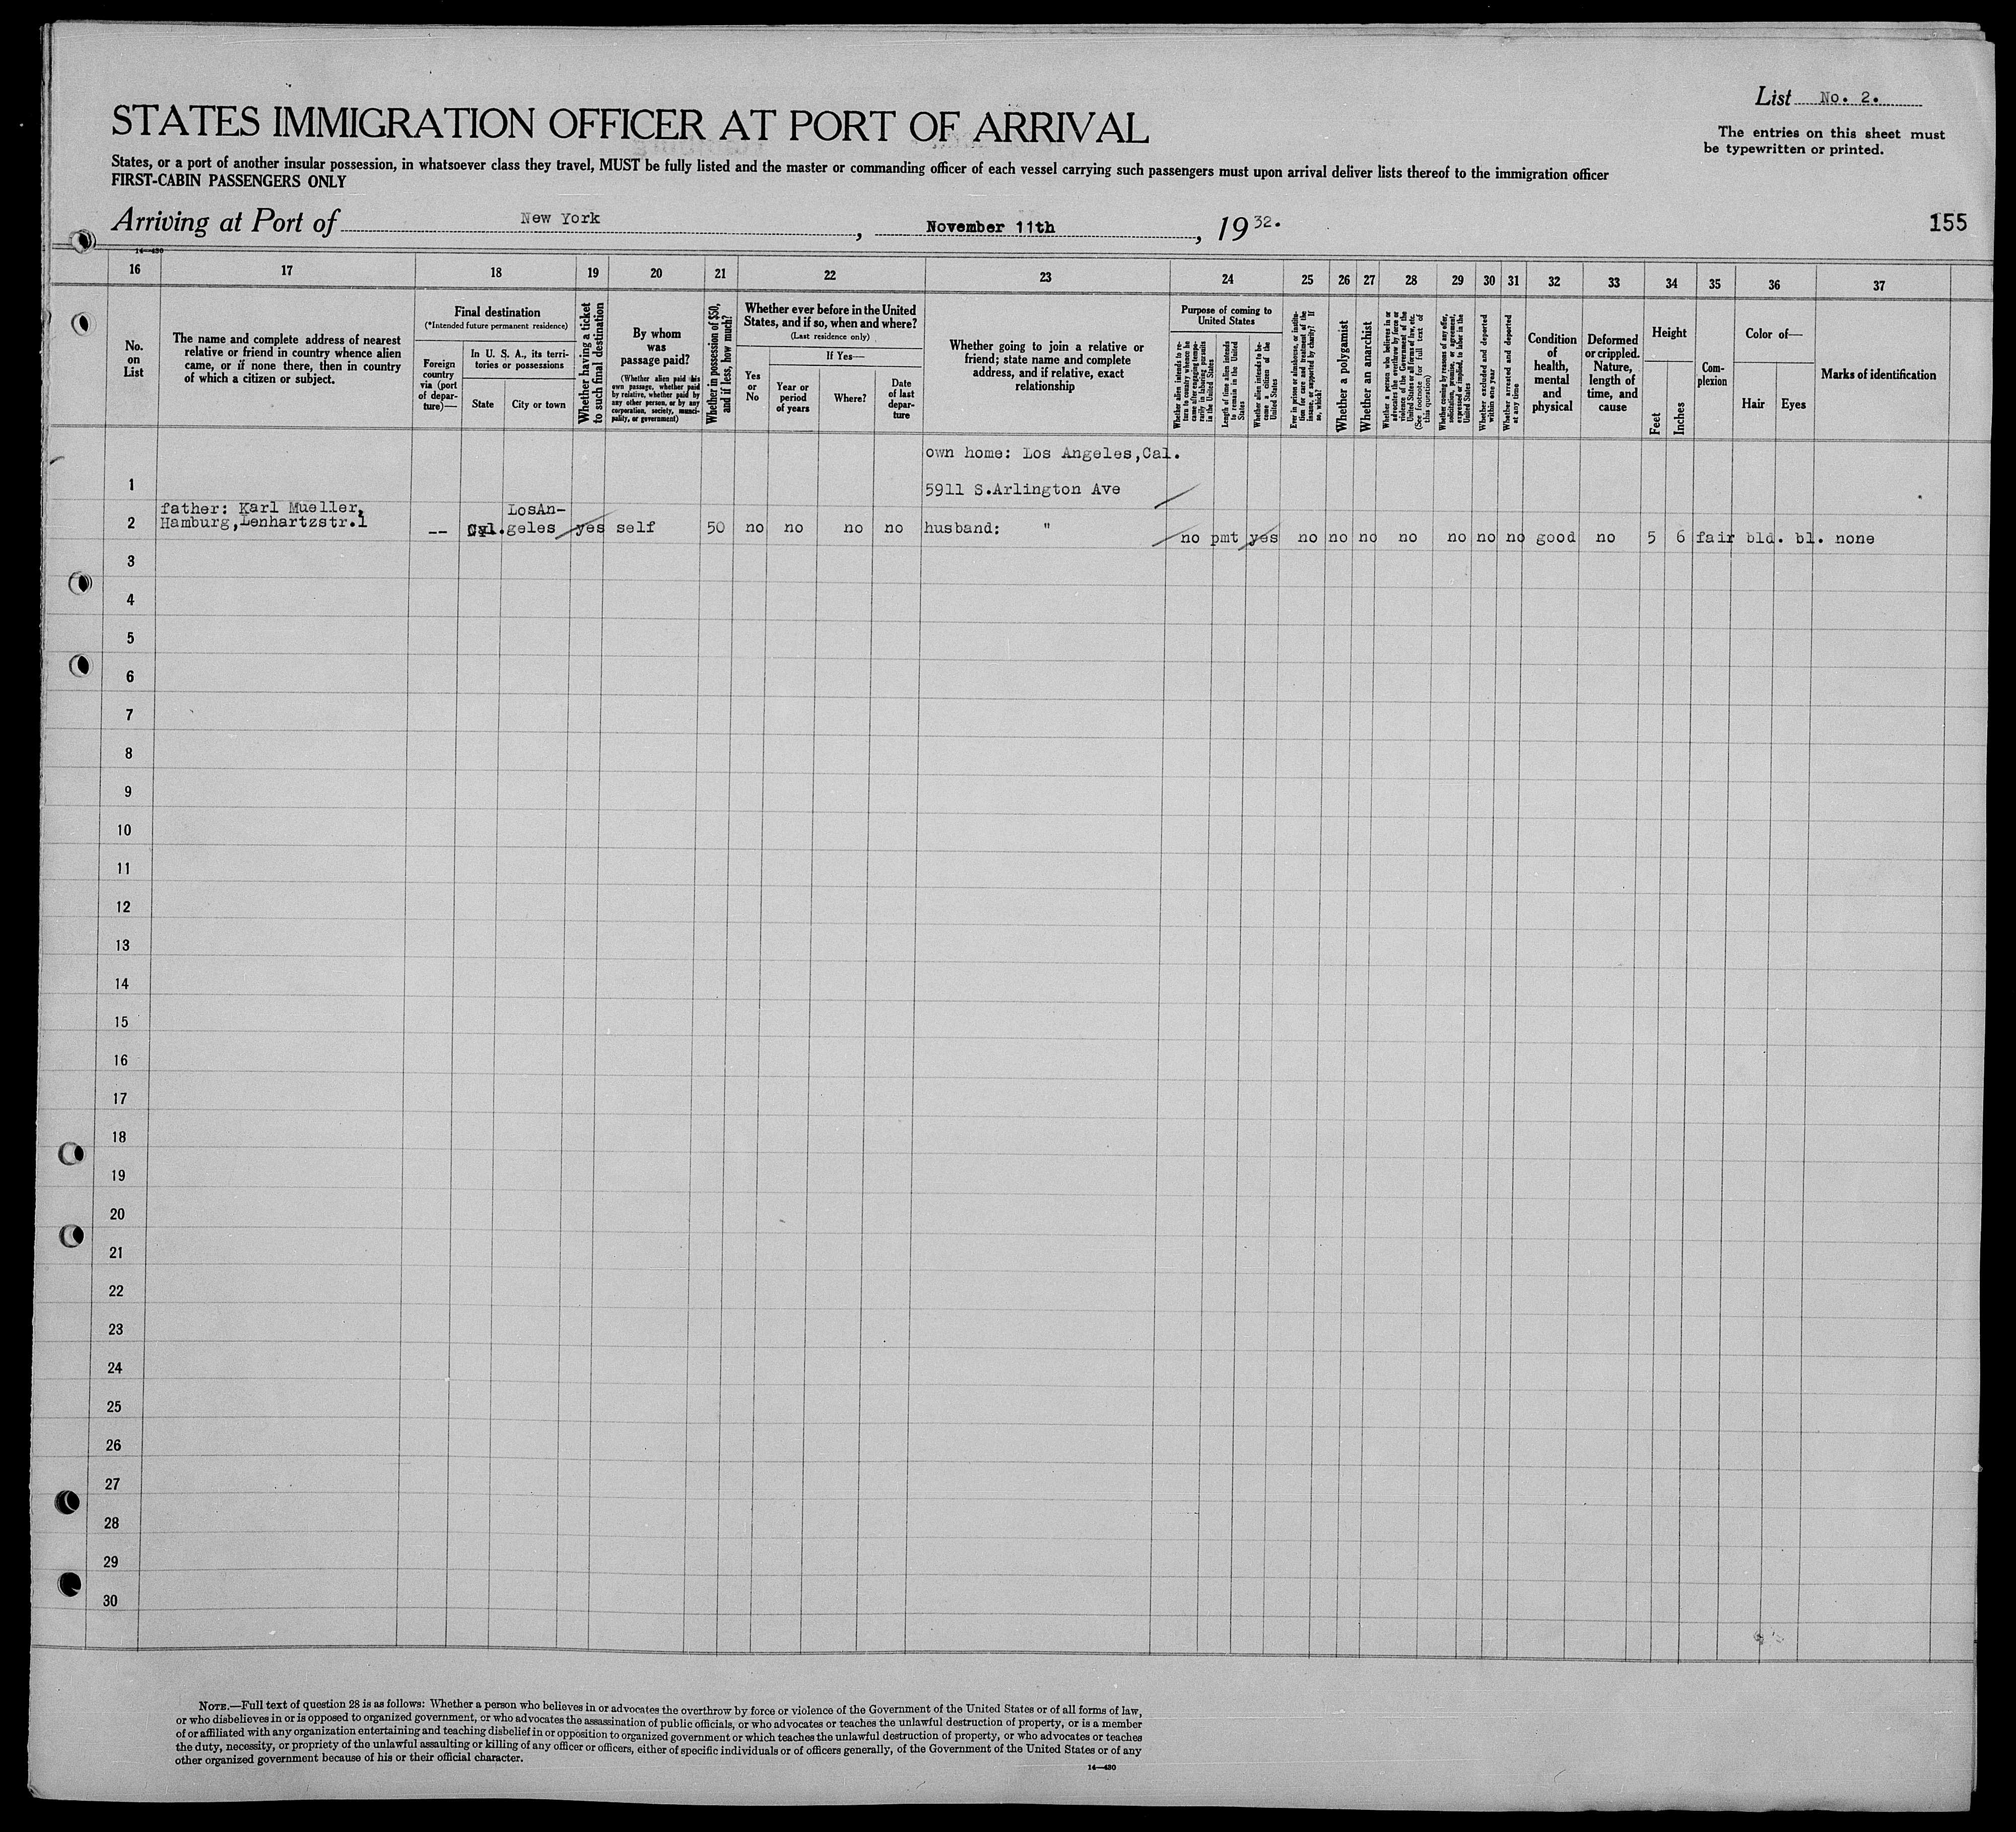 List No. 2.
STATES IMMIGRATION OFFICER AT PORT OF ARRIVAL
The entries on this sheet must
be typewritten or printed.
States, or a port of another insular possession, in whatsoever class they travel, MUST be fully listed and the master or commanding officer of each vessel carrying such passengers must upon arrival deliver lists thereof to the immigration officer
FIRST-CABIN PASSENGERS ONLY
Arriving at Port of New York, November 11th, 1932.
155
14—430
16 17 18 19 20 21 22 23 24 25 26 27 28 29 30 31 32 33 34 35 36 37
No.
on
List
The name and complete address of nearest
relative or friend in country whence alien
came, or if none there, then in country
of which a citizen or subject.
Final destination
(*Intended future permanent residence)
Foreign
country
via (port
of depar-
ture)—
In U. S. A., its terri-
tories or possessions
State
City or town
Whether having a ticket
to such final destination
By whom
was
passage paid?
(Whether alien paid his
own passage, whether paid
by relative, whether paid by
any other person, or by any
corporation, society, munici-
pality, or government)
Whether in possession of $50,
and if less, how much?
Whether ever before in the United
States, and if so, when and where?
(Last residence only)
If Yes—
Yes
or
No
Year or
period
of years
Where?
Date
of last
depar-
ture
Whether going to join a relative or
friend; state name and complete
address, and if relative, exact
relationship
Purpose of coming to
United States
Whether alien intends to re-
turn to country whence he
came after engaging tempo-
rarily in laboring pursuits
in the United States
Length of time alien intends
to remain in the United
States
Whether alien intends to be-
come a citizen of the
United States
Ever in prison or almshouse, or institu-
tion for care and treatment of the
insane, or supported by charity? If
so, which?
Whether a polygamist
Whether an anarchist
Whether a person who believes in or
advocates the overthrow by force or
violence of the Government of the
United States or all forms of law, etc.
(See footnote for full text of
this question)
Whether coming by reasons of any offer,
solicitation, promise, or agreement,
expressed or implied, to labor in the
United States
Whether excluded and deported
within one year
Whether arrested and deported
at any time
Condition
of
health,
mental
and
physical
Deformed
or crippled.
Nature,
length of
time, and
cause
Height
Feet
Inches
Com-
plexion
Color of—
Hair
Eyes
Marks of identification
own home: Los Angeles,Cal.
1 5911 S.Arlington Ave
father: Karl Mueller,
Hamburg,Lenhartzstr.1
LosAn-
2 -- Cal. geles yes self 50 no no no no husband: " no pmt yes no no no no no no no good no 5 6 fair bld. bl. none
3
4
5
6
7
8
9
10
11
12
13
14
15
16
17
18
19
20
21
22
23
24
25
26
27
28
29
30
NOTE.—Full text of question 28 is as follows: Whether a person who believes in or advocates the overthrow by force or violence of the Government of the United States or of all forms of law,
or who disbelieves in or is opposed to organized government, or who advocates the assassination of public officials, or who advocates or teaches the unlawful destruction of property, or is a member
of or affiliated with any organization entertaining and teaching disbelief in or opposition to organized government or which teaches the unlawful destruction of property, or who advocates or teaches
the duty, necessity, or propriety of the unlawful assaulting or killing of any officer or officers, either of specific individuals or of officers generally, of the Government of the United States or of any
other organized government because of his or their official character.
14—430